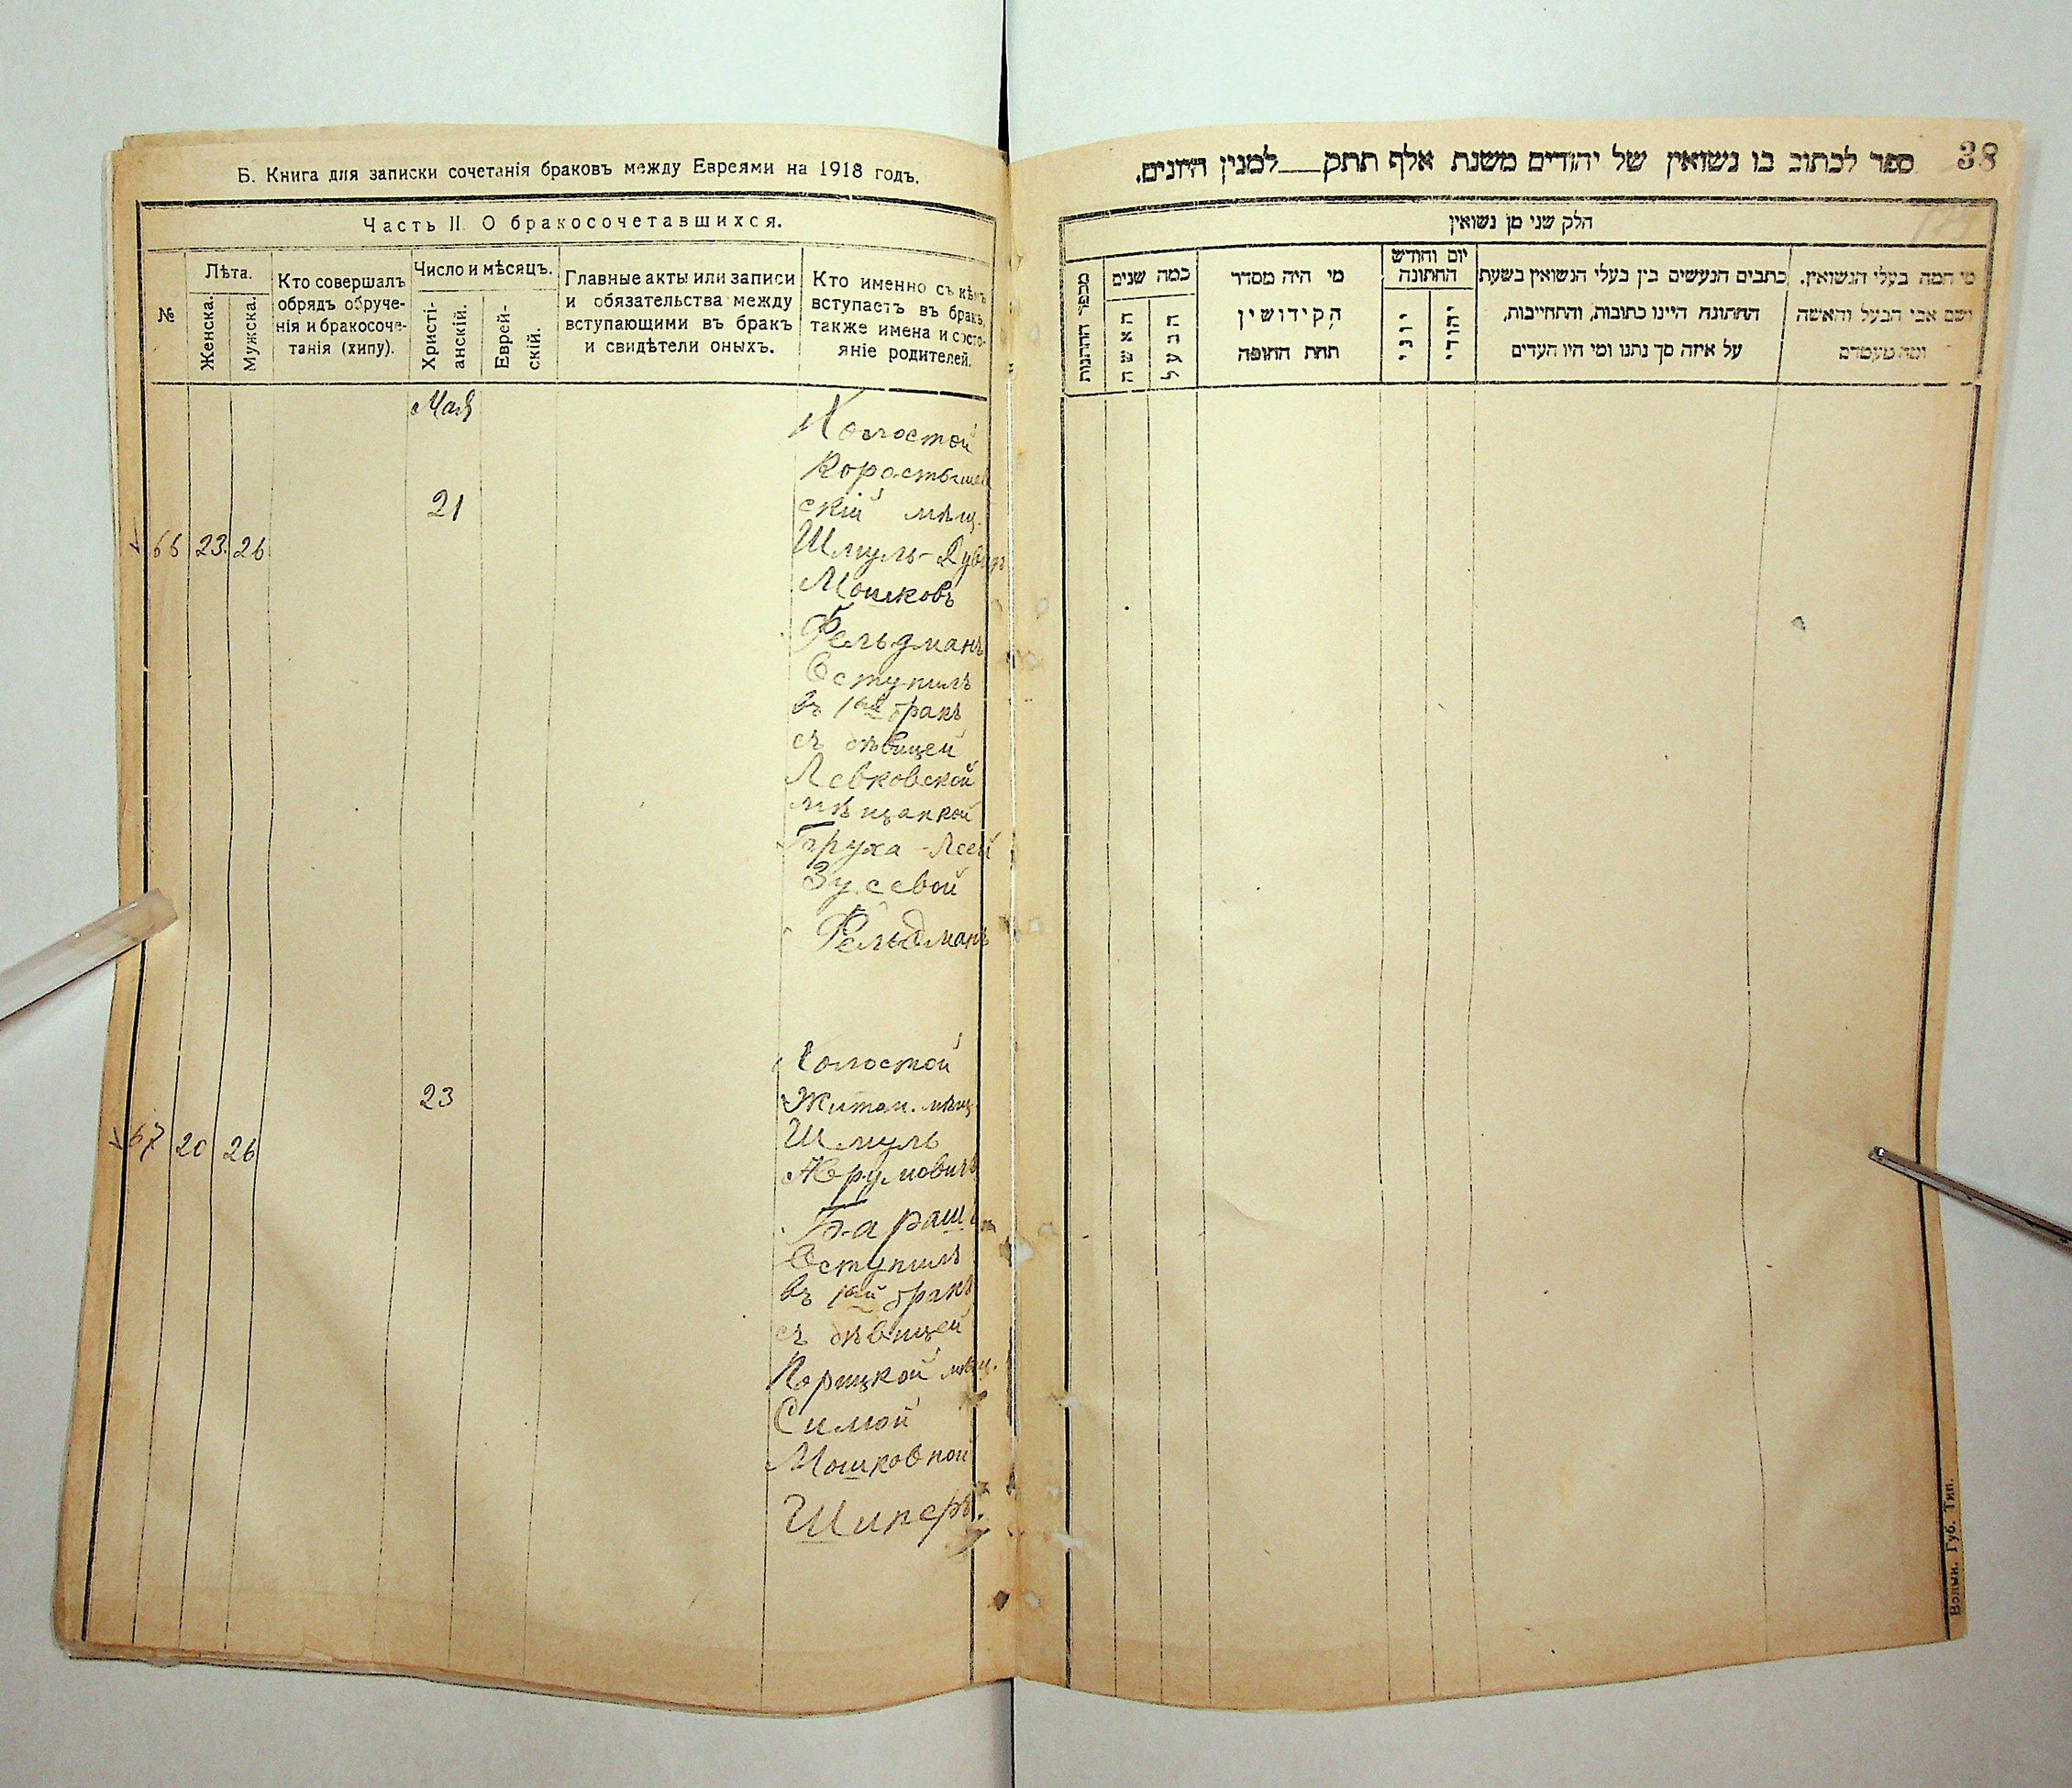 Б. Книга для записки сочетанія браковъ между Евреями на 1918 годъ.
Часть II. О бракосочетавшихся.
№
Лѣта.
Женска.
Мужска.
Кто совершалъ
обрядъ обруче-
нія и бракосоче-
танія (хипу).
Число и мѣсяцъ.
Христі-
анскій.
Еврей-
скій.
Главные акты или записи
и обязательства между
вступающими въ бракъ
и свидѣтели оныхъ.
Кто именно съ кѣмъ
вступаетъ въ бракъ,
также имена и состо-
яніе родителей.
Мая
Холостой
Коростышев
скій мѣщ.
21
66 23 26
Шмуль-
Мошковъ
Фельдманъ
Вступилъ
въ 1ый бракъ
съ дѣвицей
Левковской
мѣщанкой
Бруха-Леей
Зусевой
Фельдманъ
Холостой
23
Житом. мѣщ.
67 20 26
Шмуль
Барашъ
Вступилъ
въ 1ый бракъ
съ дѣвицей
Корицкой мѣщ.
Симой
Мошковной
Шиперъ.
38
ספר לכתוב בו נשואין של יהודים משנת אלף תתק___למנין היונים.
חלק שני מן נשואין
מספר החתנות
כמה שנים
האשה
הבעל
מי היה מסדר
הקידושין
תחת החופה
יום וחודש
החתונה
יוני
יהודי
כתבים הנעשים בין בעלי הנשואין בשעת
החתונה היינו כתובות, והתחייבות,
על איזה סך נתנו ומי היו העדים
מי המה בעלי הנשואין.
ושם אבי הבעל והאשה
ומה מעמדם
Волын. Губ. Тип.